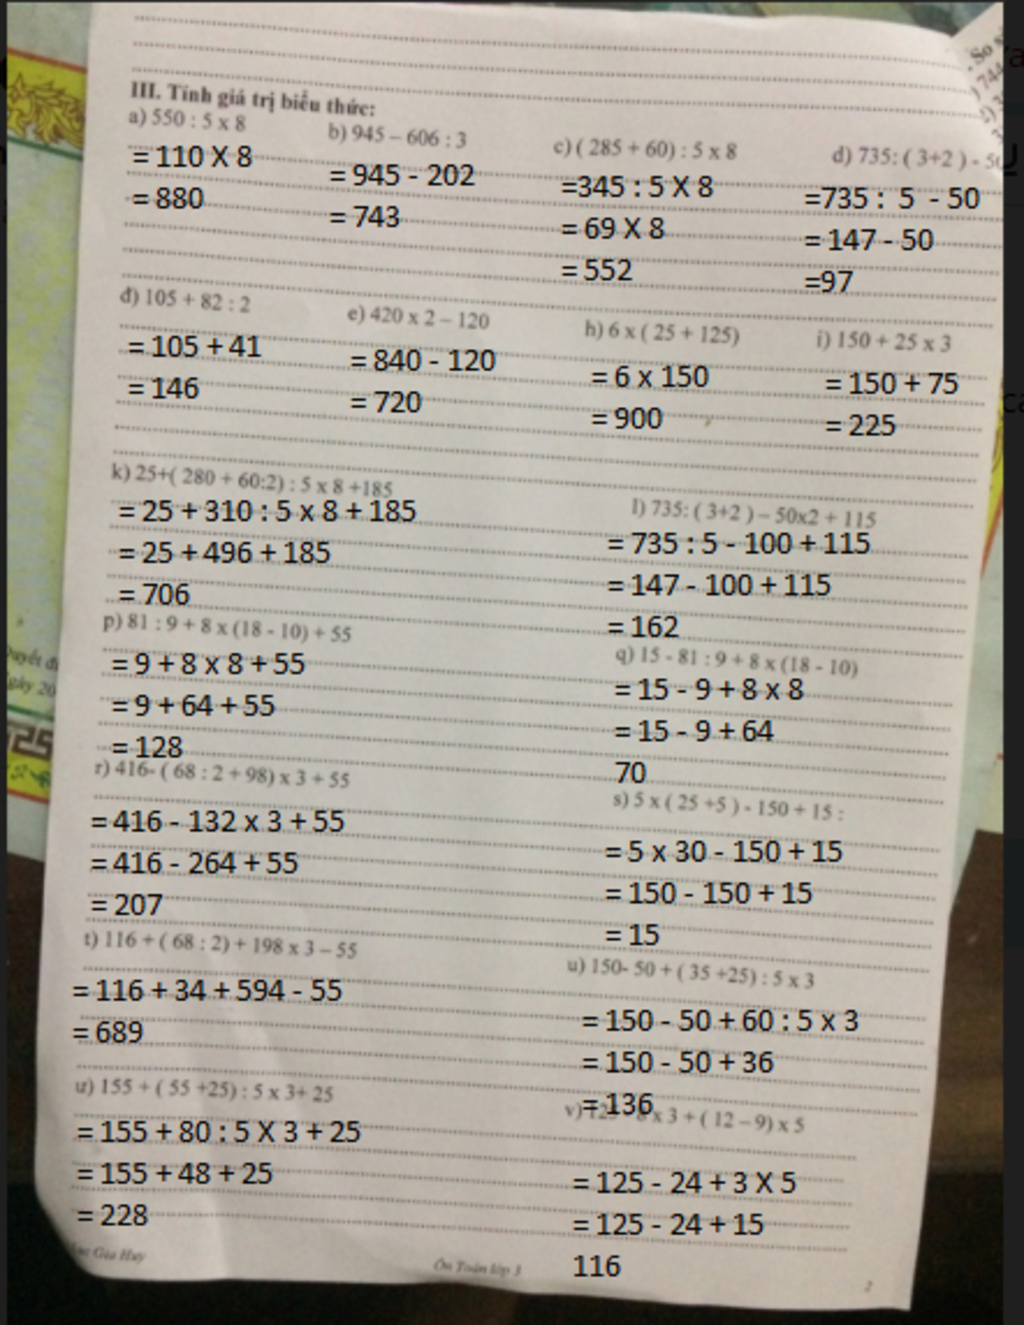 III. Tính giá trị biểu thức:
a) 550 : 5 x 8
= 110 X 8
= 880
b) 945 – 606 : 3
= 945 - 202
= 743
c) ( 285 + 60) : 5 x 8
=345 : 5 X 8
= 69 X 8
= 552
d) 735: ( 3+2 ) - 50
=735 : 5 - 50
= 147 - 50
=97
đ) 105 + 82 : 2
= 105 + 41
= 146
e) 420 x 2 – 120
= 840 - 120
= 720
h) 6 x ( 25 + 125)
= 6 x 150
= 900
i) 150 + 25 x 3
= 150 + 75
= 225
k) 25+( 280 + 60:2) : 5 x 8 +185
= 25 + 310 : 5 x 8 + 185
= 25 + 496 + 185
= 706
l) 735: ( 3+2 ) – 50x2 + 115
= 735 : 5 - 100 + 115
= 147 - 100 + 115
= 162
p) 81 : 9 + 8 x (18 - 10) + 55
= 9 + 8 x 8 + 55
= 9 + 64 + 55
= 128
q) 15 - 81 : 9 + 8 x (18 - 10)
= 15 - 9 + 8 x 8
= 15 - 9 + 64
70
r) 416- ( 68 : 2 + 98) x 3 + 55
= 416 - 132 x 3 + 55
= 416 - 264 + 55
= 207
s) 5 x ( 25 +5 ) - 150 + 15 :
= 5 x 30 - 150 + 15
= 150 - 150 + 15
= 15
t) 116 + ( 68 : 2) + 198 x 3 – 55
= 116 + 34 + 594 - 55
= 689
u) 150- 50 + ( 35 +25) : 5 x 3
= 150 - 50 + 60 : 5 x 3
= 150 - 50 + 36
= 136
ư) 155 + ( 55 +25) : 5 x 3+ 25
= 155 + 80 : 5 X 3 + 25
= 155 + 48 + 25
= 228
v) x 3 + ( 12 – 9) x 5
= 125 - 24 + 3 X 5
= 125 - 24 + 15
116
Gia Huy
Ôn Toán lớp 3
2